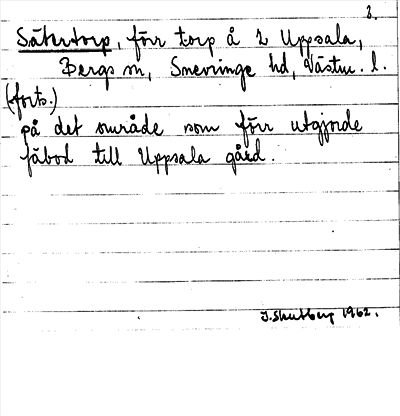 2.
Sätertorp, förr torp å 2 Uppsala,
Bergs sn, Snevringe hd, Västm. l.
(forts.)
på det område som förr utgjorde
fäbod till Uppsala gård.
1962.